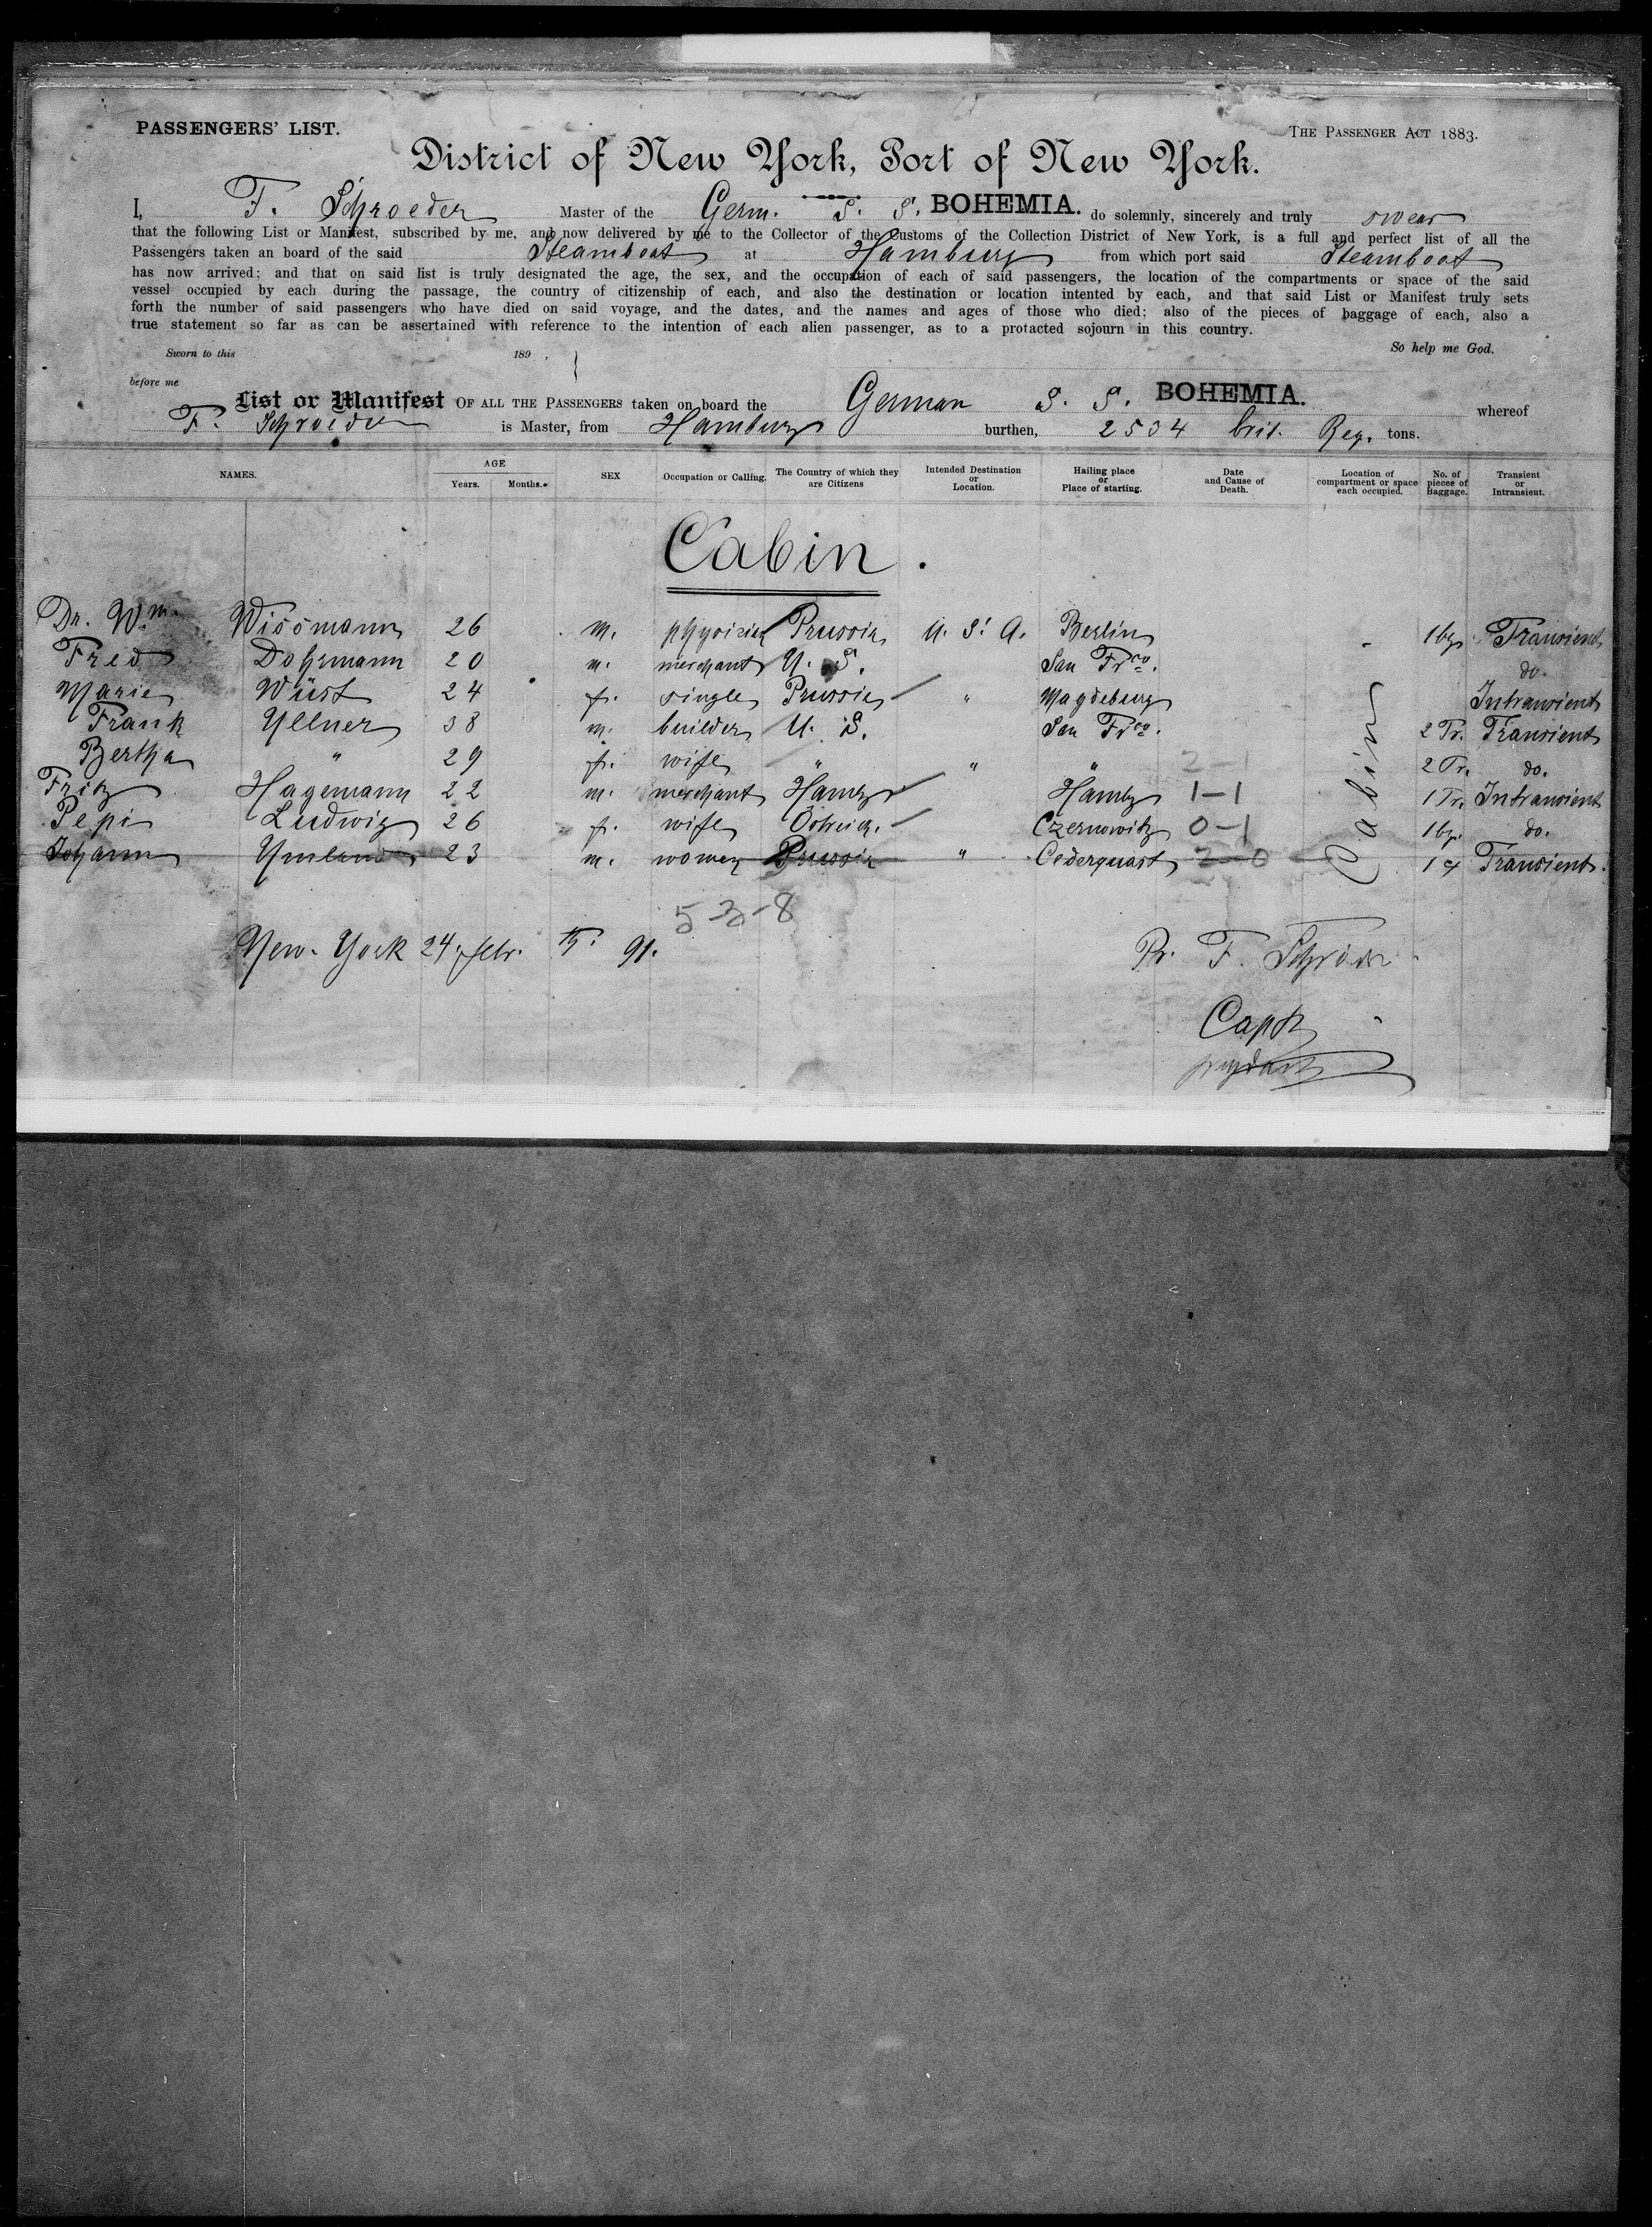 PASSENGERS' LIST.
THE PASSENGER ACT 1883.
District of New York, Port of New York.
I, F. Schroeder Master of the Germ. S. S. BOHEMIA. do solemnly, sincerely and truly swear
that the following List or Manifest, subscribed by me, and now delivered by me to the Collector of the Customs of the Collection District of New York, is a full and perfect list of all the
Passengers taken an board of the said Steamboat at Hamburg from which port said Steamboat
has now arrived; and that on said list is truly designated the age, the sex, and the occupation of each of said passengers, the location of the compartments or space of the said
vessel occupied by each during the passage, the country of citizenship of each, and also the destination or location intented by each, and that said List or Manifest truly sets
forth the number of said passengers who have died on said voyage, and the dates, and the names and ages of those who died; also of the pieces of baggage of each, also a
true statement so far as can be assertained with reference to the intention of each alien passenger, as to a protacted sojourn in this country.
Sworn to this 189 , So help me God.
before me
List or Manifest OF ALL THE PASSENGERS taken on board the German S. S. BOHEMIA. whereof
F. Schroeder is Master, from Hamburg burthen, 2534 brit. Reg. tons.
NAMES. AGE Years. Months. SEX Occupation or Calling. The Country of which they are Citizens Intended Destination or Location. Hailing place or Place of starting. Date and Cause of Death. Location of compartment or space each occupied. No. of pieces of Baggage. Transient or Intransient.
Cabin.
Dr. Wm. Wissmann 26 m. physician Prussia U. S. A. Berlin 1 bg. Transient
Fred Dohrmann 20 m. merchant U. S. San Frco. do.
Marie Wüst 24 f. single Prussia " Magdeburg Intransient
Frank Ullner 38 m. builder U. S. San Frco. 2 Tr. Transient
Bertha " 29 f. wife " " " 2-1 2 Tr. do.
Fritz Hagemann 22 m. merchant Hambg Hambg 1-1 1 Tr. Intransient
Pepi Ludwig 26 f. wife Östreich. Czernowitz 0-1 1 bg. do.
Johann Umland 23 m. Prussia " Cederquast 2-0 1 Transient.
Cabin
5-3-8
New-York 24. febr. 91.
Pr. F. Schröder
Capt